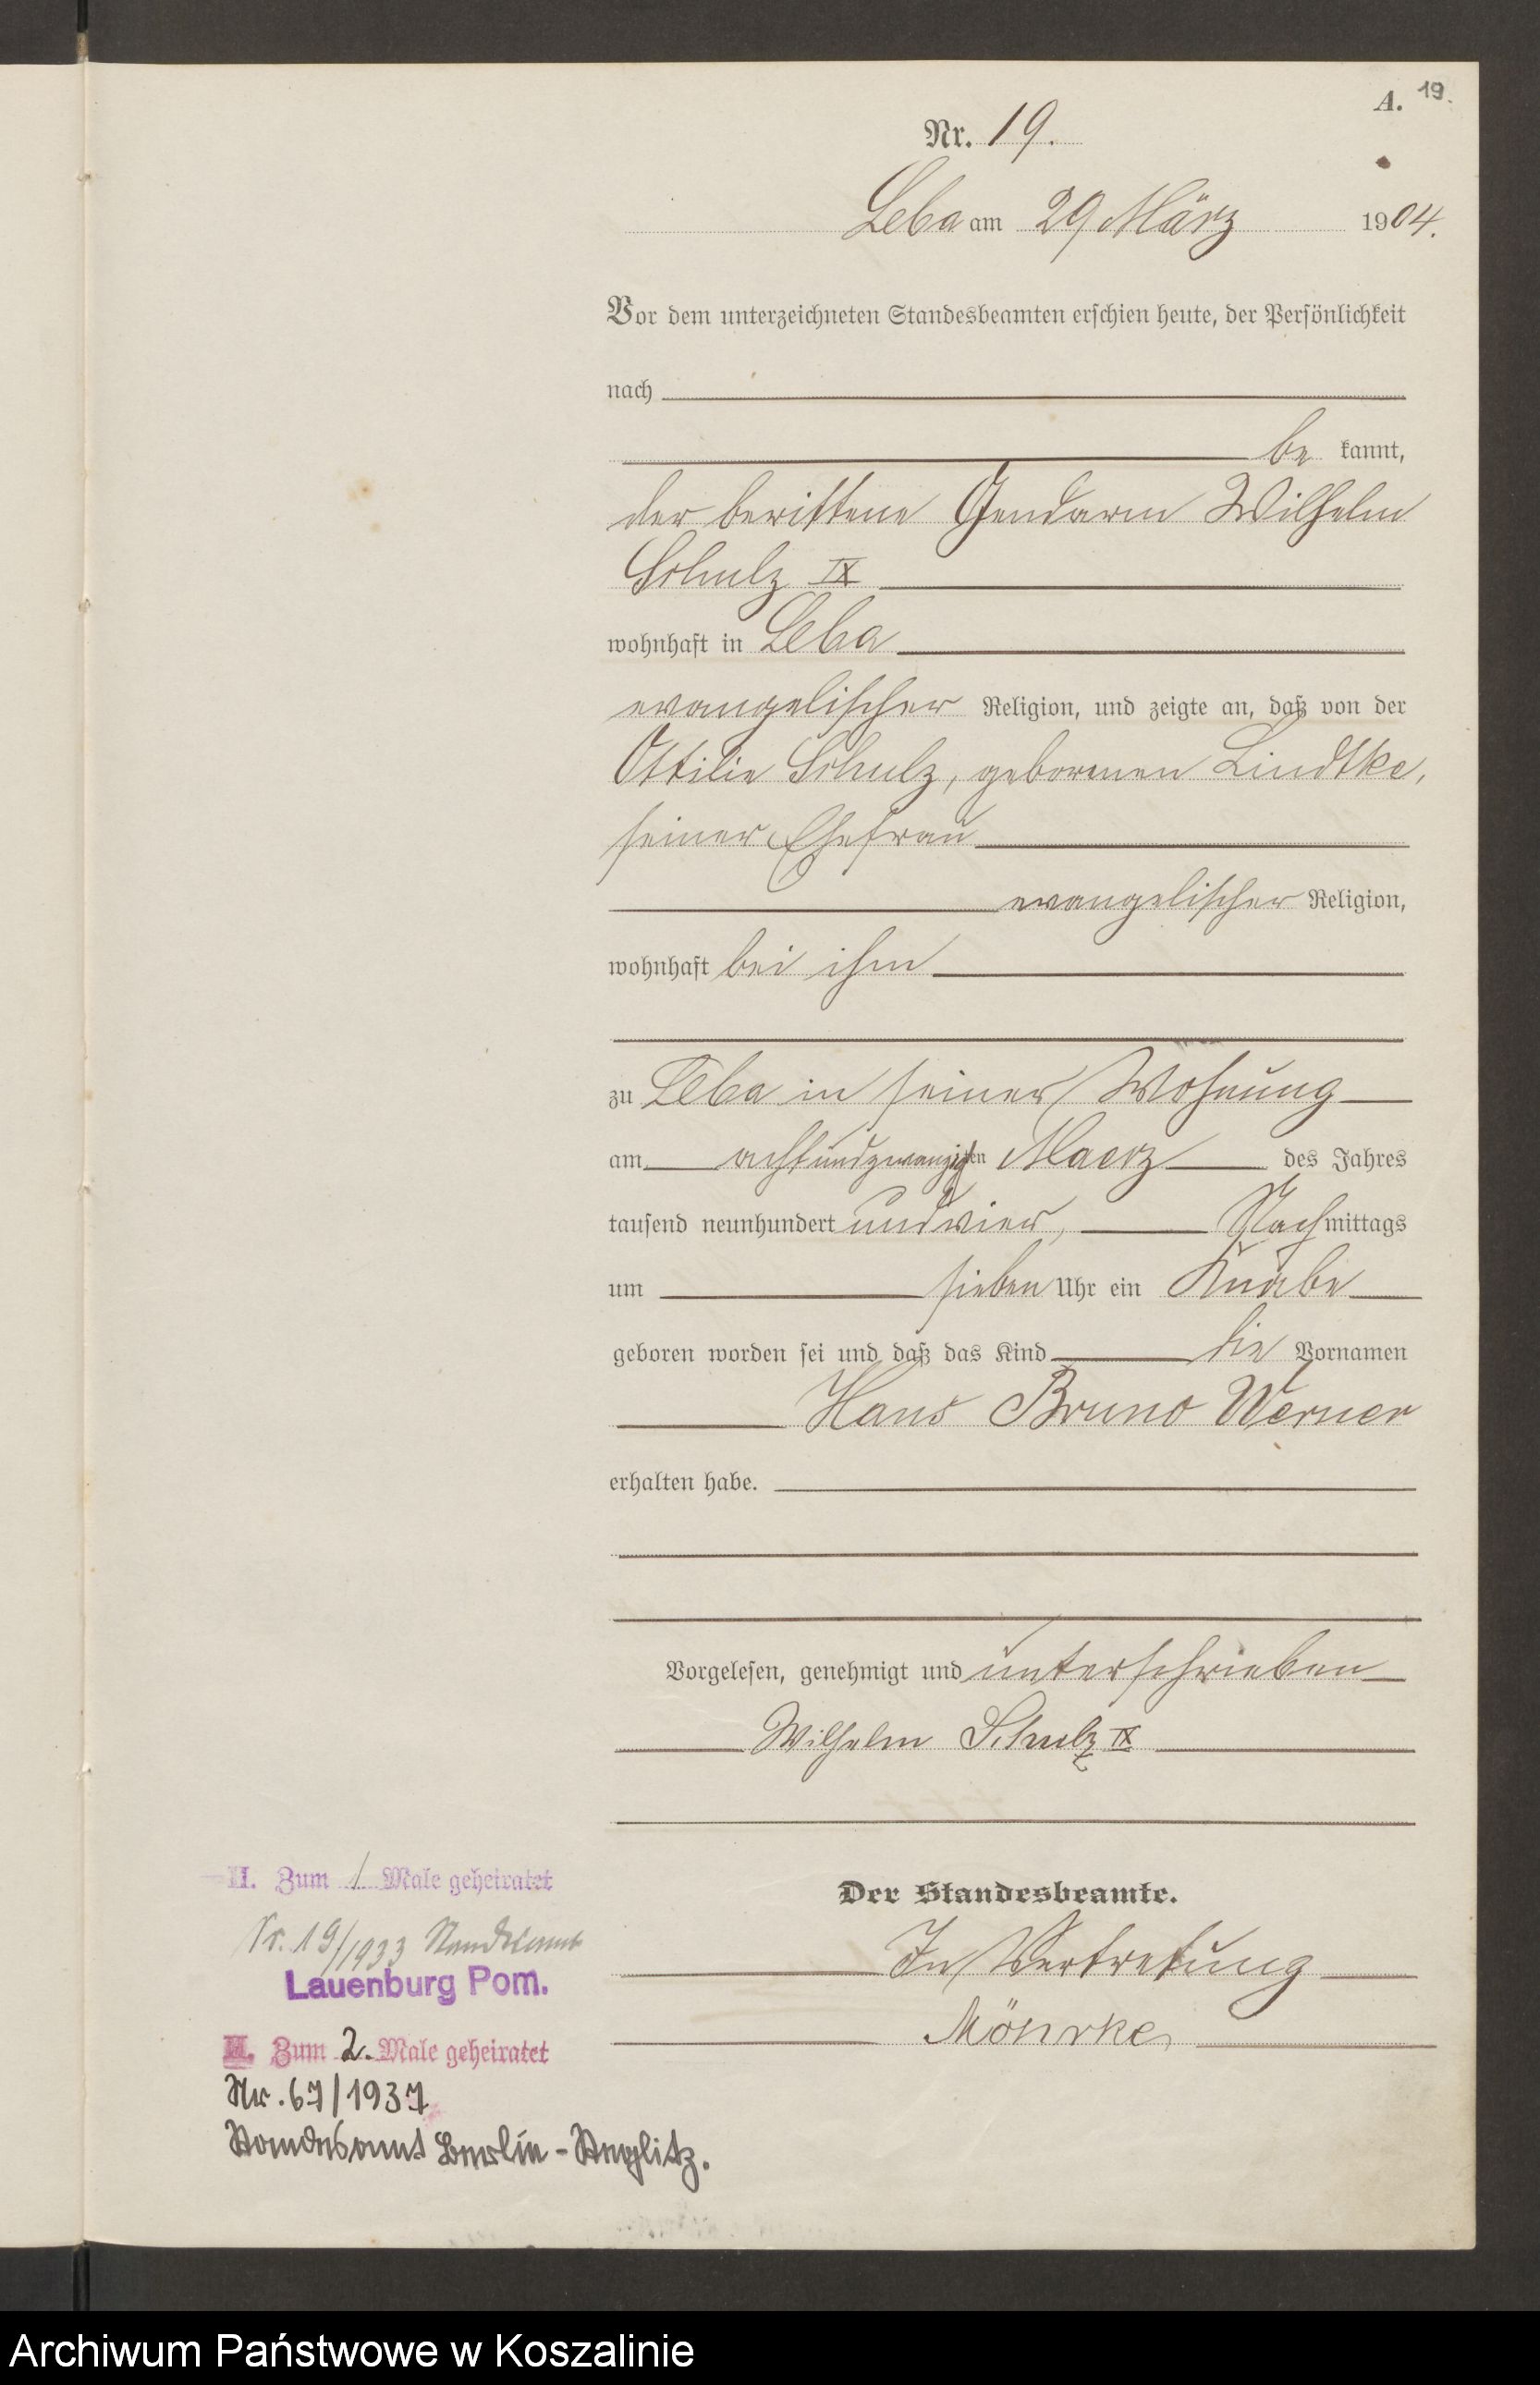 A. 19.
Nr. 19.
Leba am 29 März 1904.
Vor dem unterzeichneten Standesbeamten erschien heute, der Persönlichkeit
nach
be kannt,
der berittene Gendarm Wilhelm
Schulz IX
wohnhaft in Leba
evangelischer Religion, und zeigte an, daß von der
Ottilie Schulz, geborenen Lindtke,
seiner Ehefrau
evangelischer Religion,
wohnhaft bei ihm
zu Leba in seiner Wohnung
am achtundzwanzigsten Maerz des Jahres
tausend neunhundert und vier, Nachmittags
um sieben Uhr ein Knabe
geboren worden sei und daß das Kind die Vornamen
Hans Bruno Werner
erhalten habe.
Vorgelesen, genehmigt und unterschrieben
Wilhelm Schulz IX
Der Standesbeamte.
In Vertretung
Möhrke
II. Zum 1 Male geheiratet
Nr. 19/1933 Standesamt
Lauenburg Pom.
II. Zum 2. Male geheiratet
Nr. 67/1937
Standesamt Berlin-Steglitz.
Archiwum Państwowe w Koszalinie